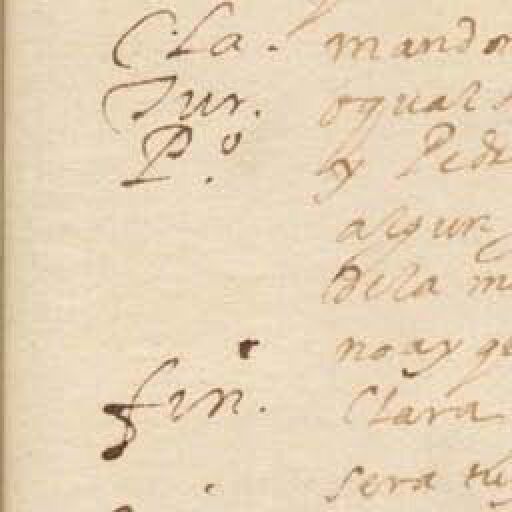 C·la. mando
Jur. o qual
P.º ay Pedr
algun
de la m
no ay ge
fin. Clara
sera tu